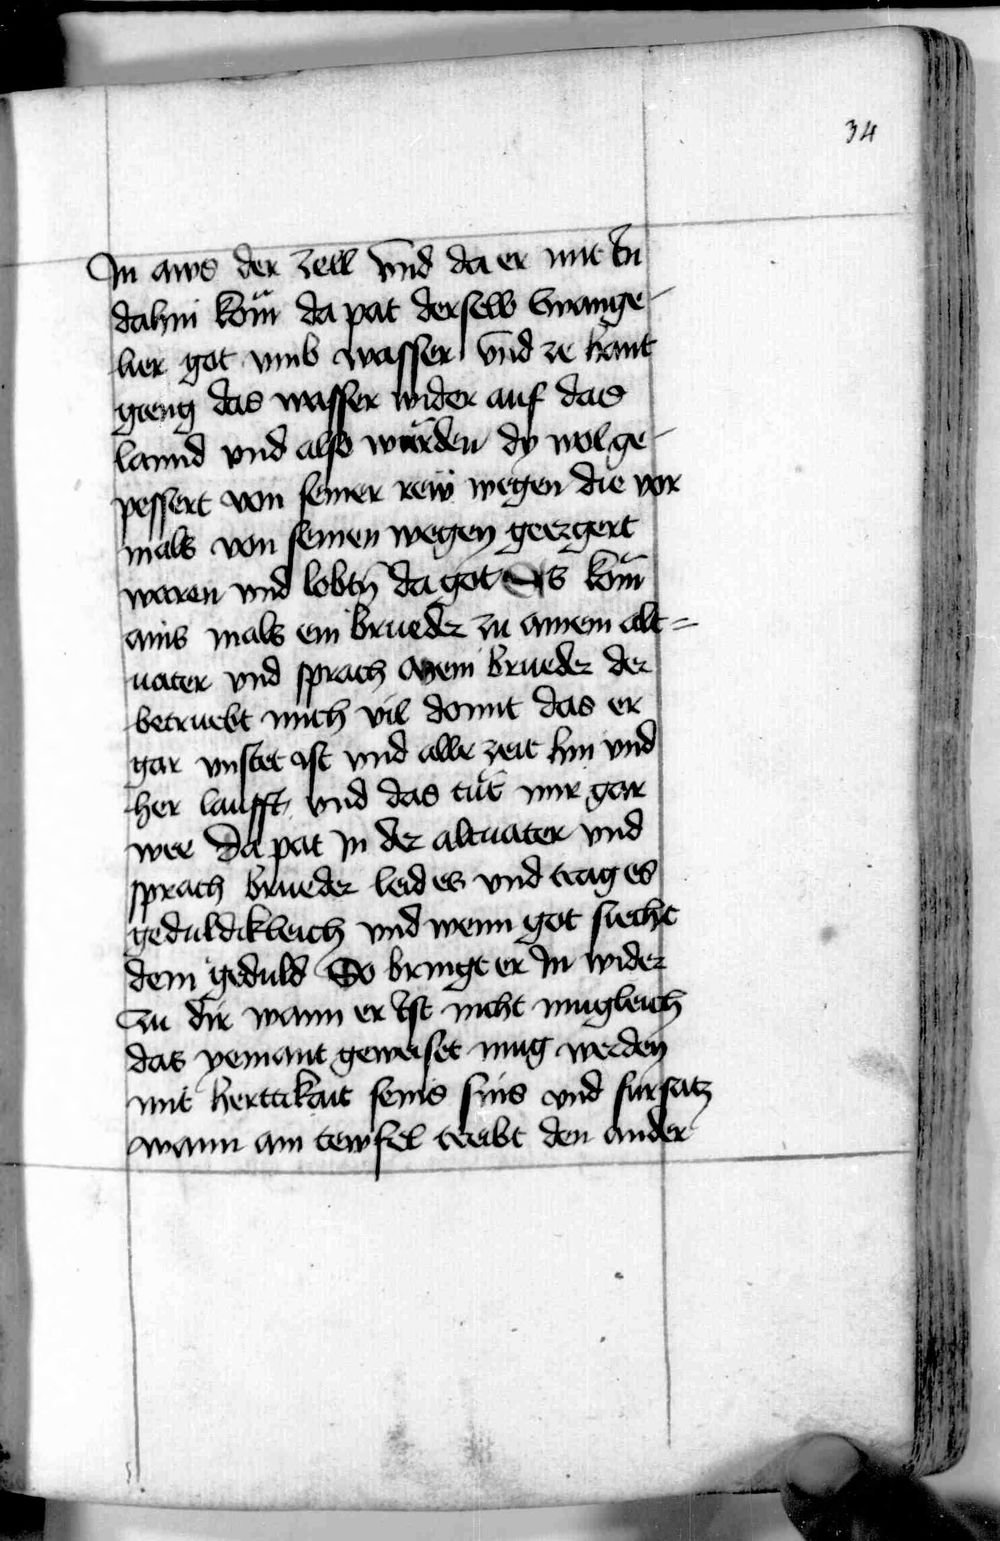 34
In aws der zell vnd da er mit In
dahin kom da pat derselb Ewange-
lier got vmb wasser vnd ze hant
gieng das wasser wider auf das
lannd vnd also wurden dy wol ge-
pessert von seiner rew wegen die vor
mals von seinen wegen geergert
waren vnd lobtn da got Es kom
ains mals ein brueder zu ainem alt=
uater vnd sprach Mein brueder der
betruebt mich vil domit das er
gar vnstet ist vnd alle zeit hin vnd
her laufft vnd das tut mir gar
wee Da pat in der altuater vnd
sprach brueder leid es vnd trag es
geduldikleich vnd wenn got siecht
dein geduld So bringt er In wider
zu dir wann er Ist nicht mugleich
das yemant geweiset mug werden
mit herttikait seins sins vnd fursatz
wann ain tewfel treibt den ander